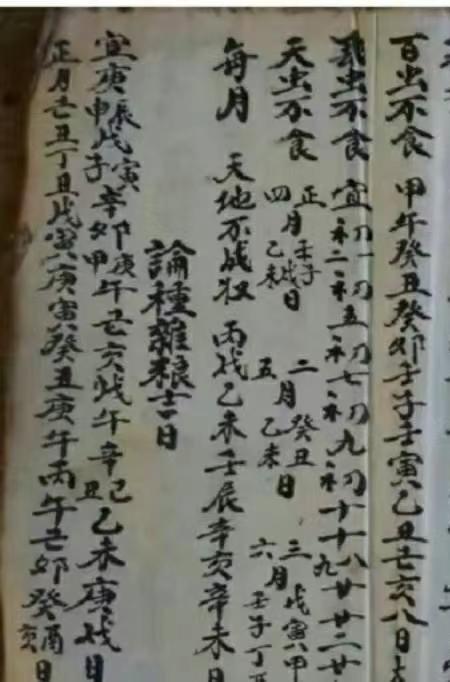 百虫不食 甲午癸丑癸卯壬子壬寅乙丑乙亥八日
虫不食 宜初一初二初五初七初九初十十八九廿廿二廿
天虫不食 正月壬子壬戌日 二月癸丑日 三月戊寅甲
四月乙未 五月乙未 六月壬子丁
每月 天地不成收 丙戌乙未壬辰辛亥辛未日
論種雜粮吉日
宜庚辰戊寅庚申戊子辛卯庚午甲午乙亥戊午辛丑己乙未庚戌日
正月乙丑丁丑戊寅庚寅癸丑庚午丙午乙卯癸酉亥日